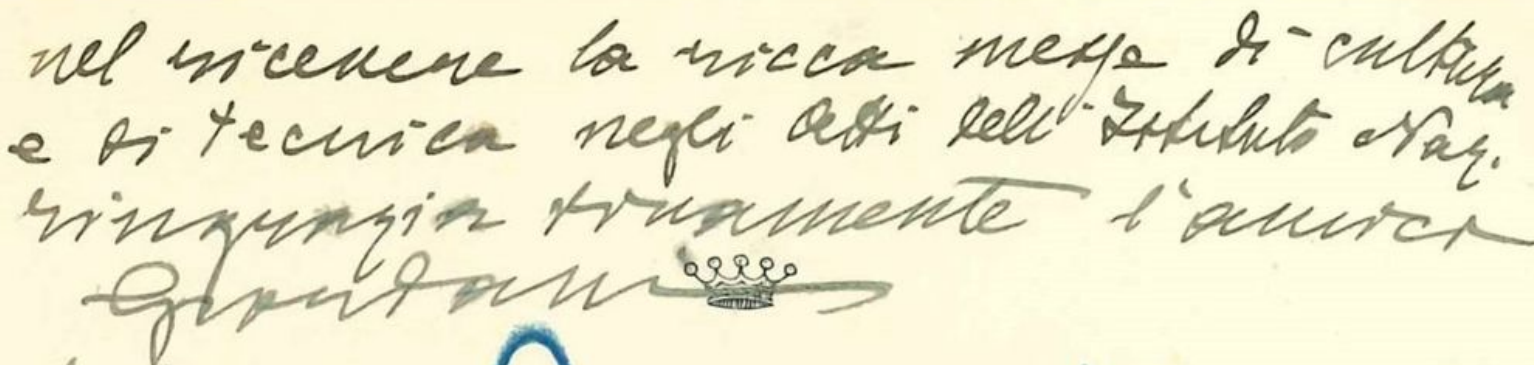 nel ricevere la ricca messe di cultura
e di tecnica negli Atti dell'Istituto Naz.
ringrazia vivamente l'amico
Giordani